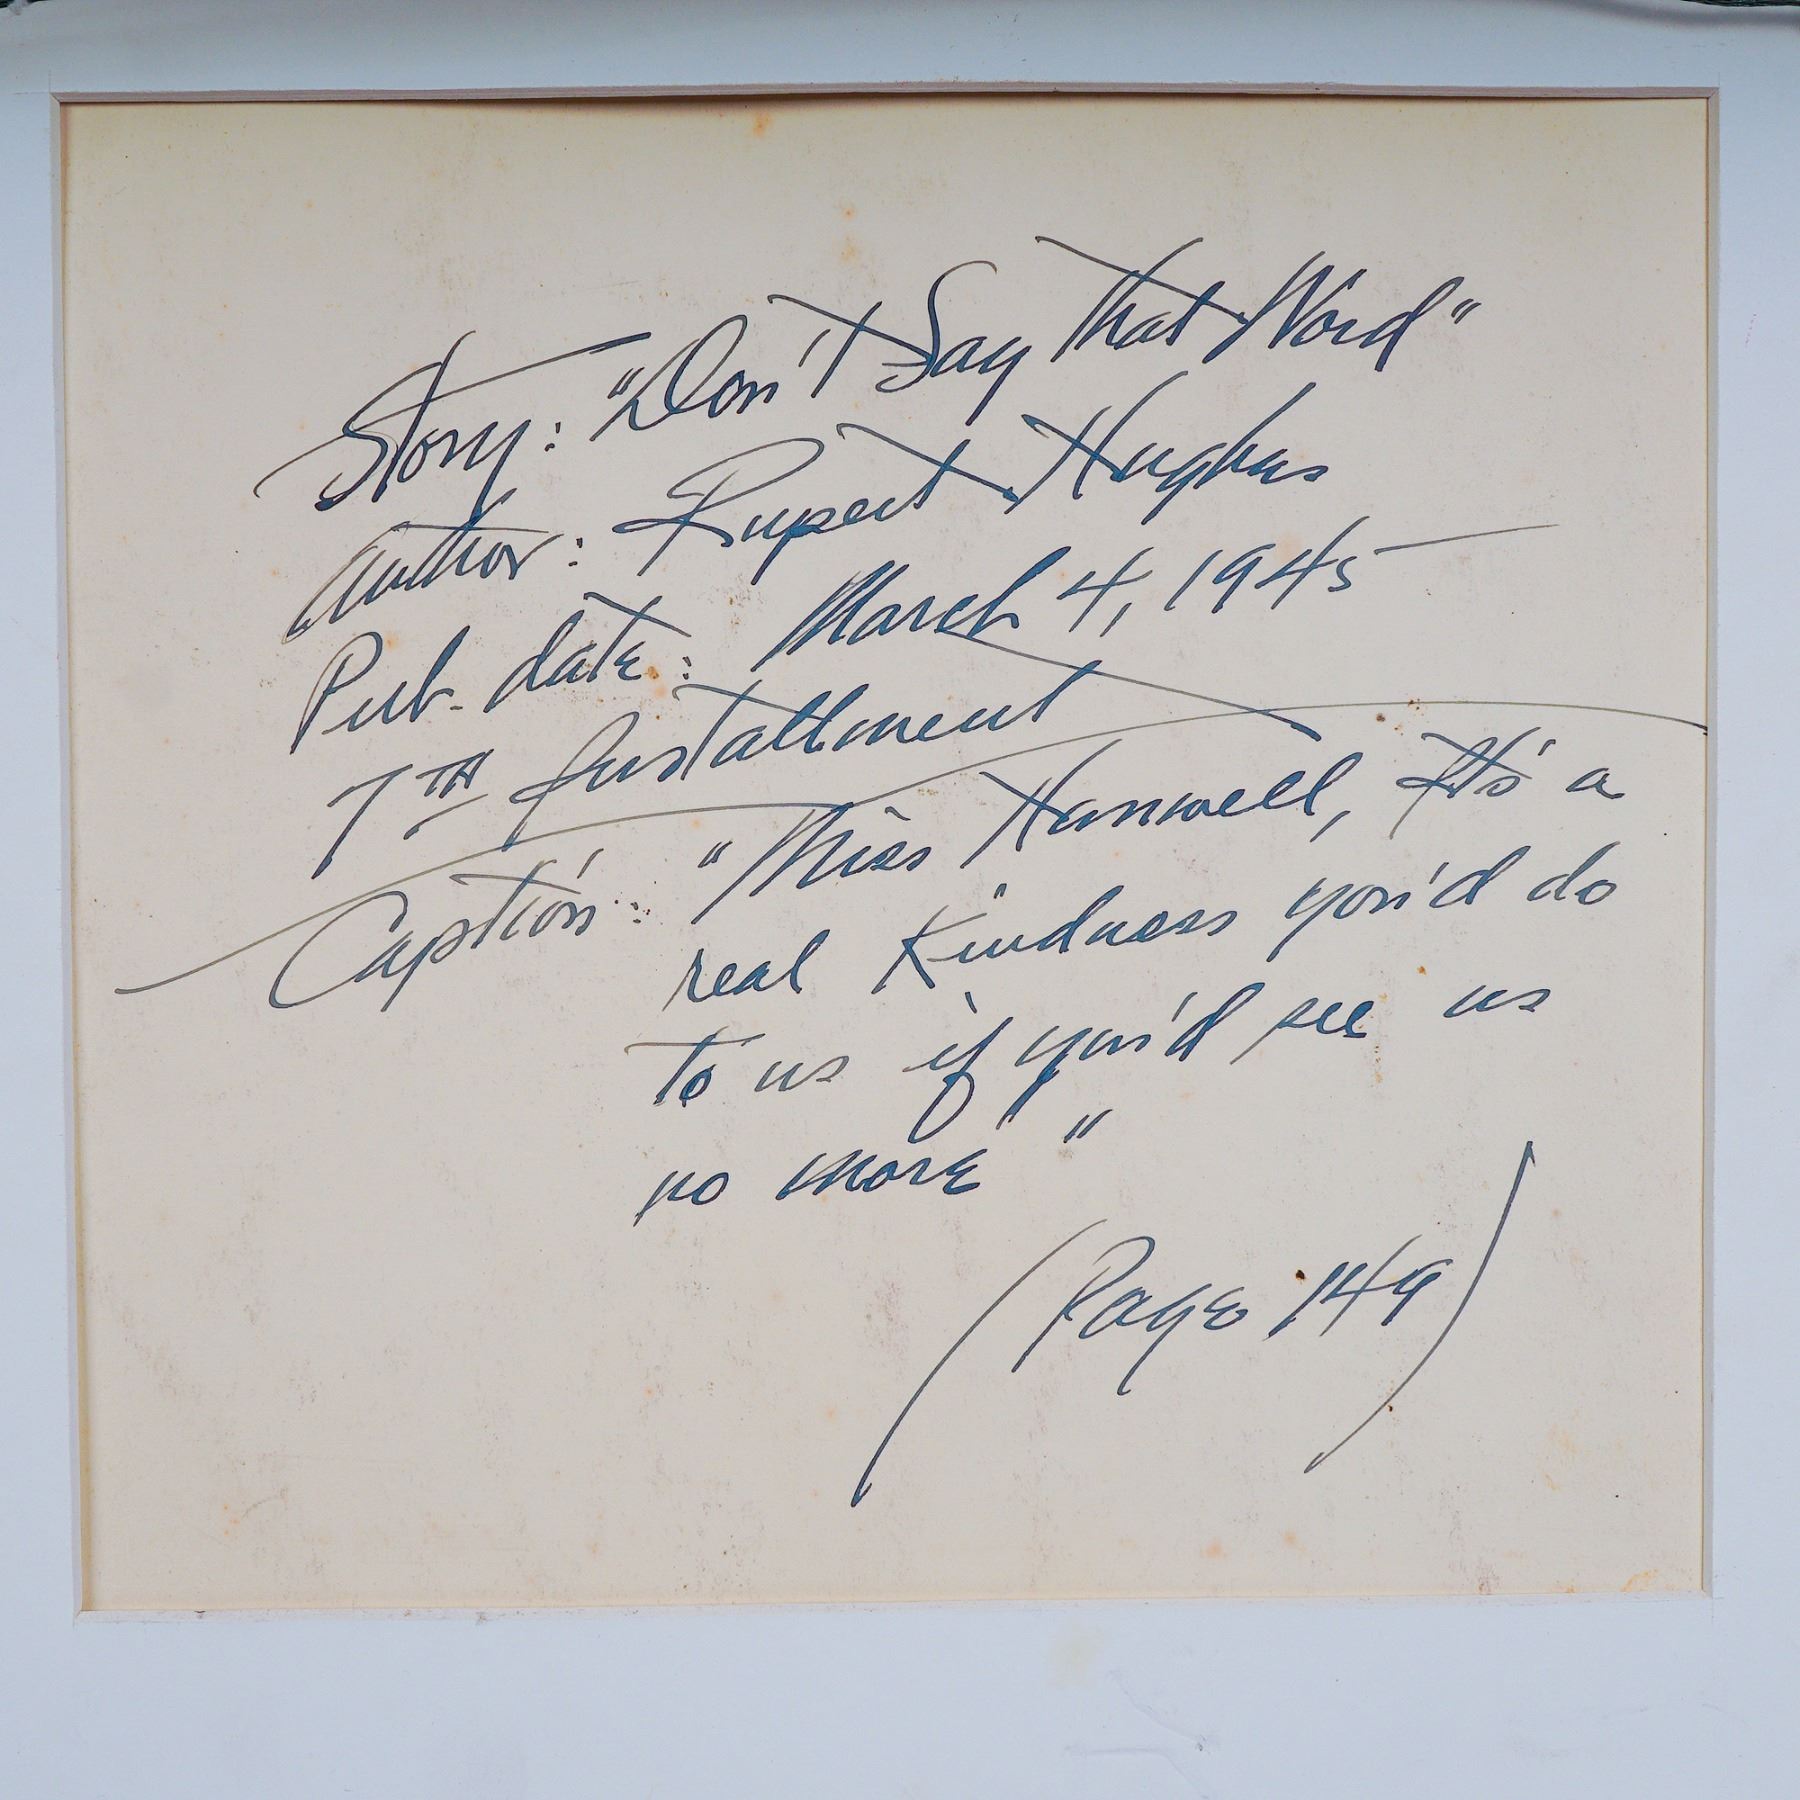 Story: "Don't Say That Word"
Author: Rupert Hughes
Pub. date: March 4, 1945
7TH Installment
Caption: "Miss Hanwell, It's a
real kindness you'd do
to us if you'd see us
no more"
(Page 149)